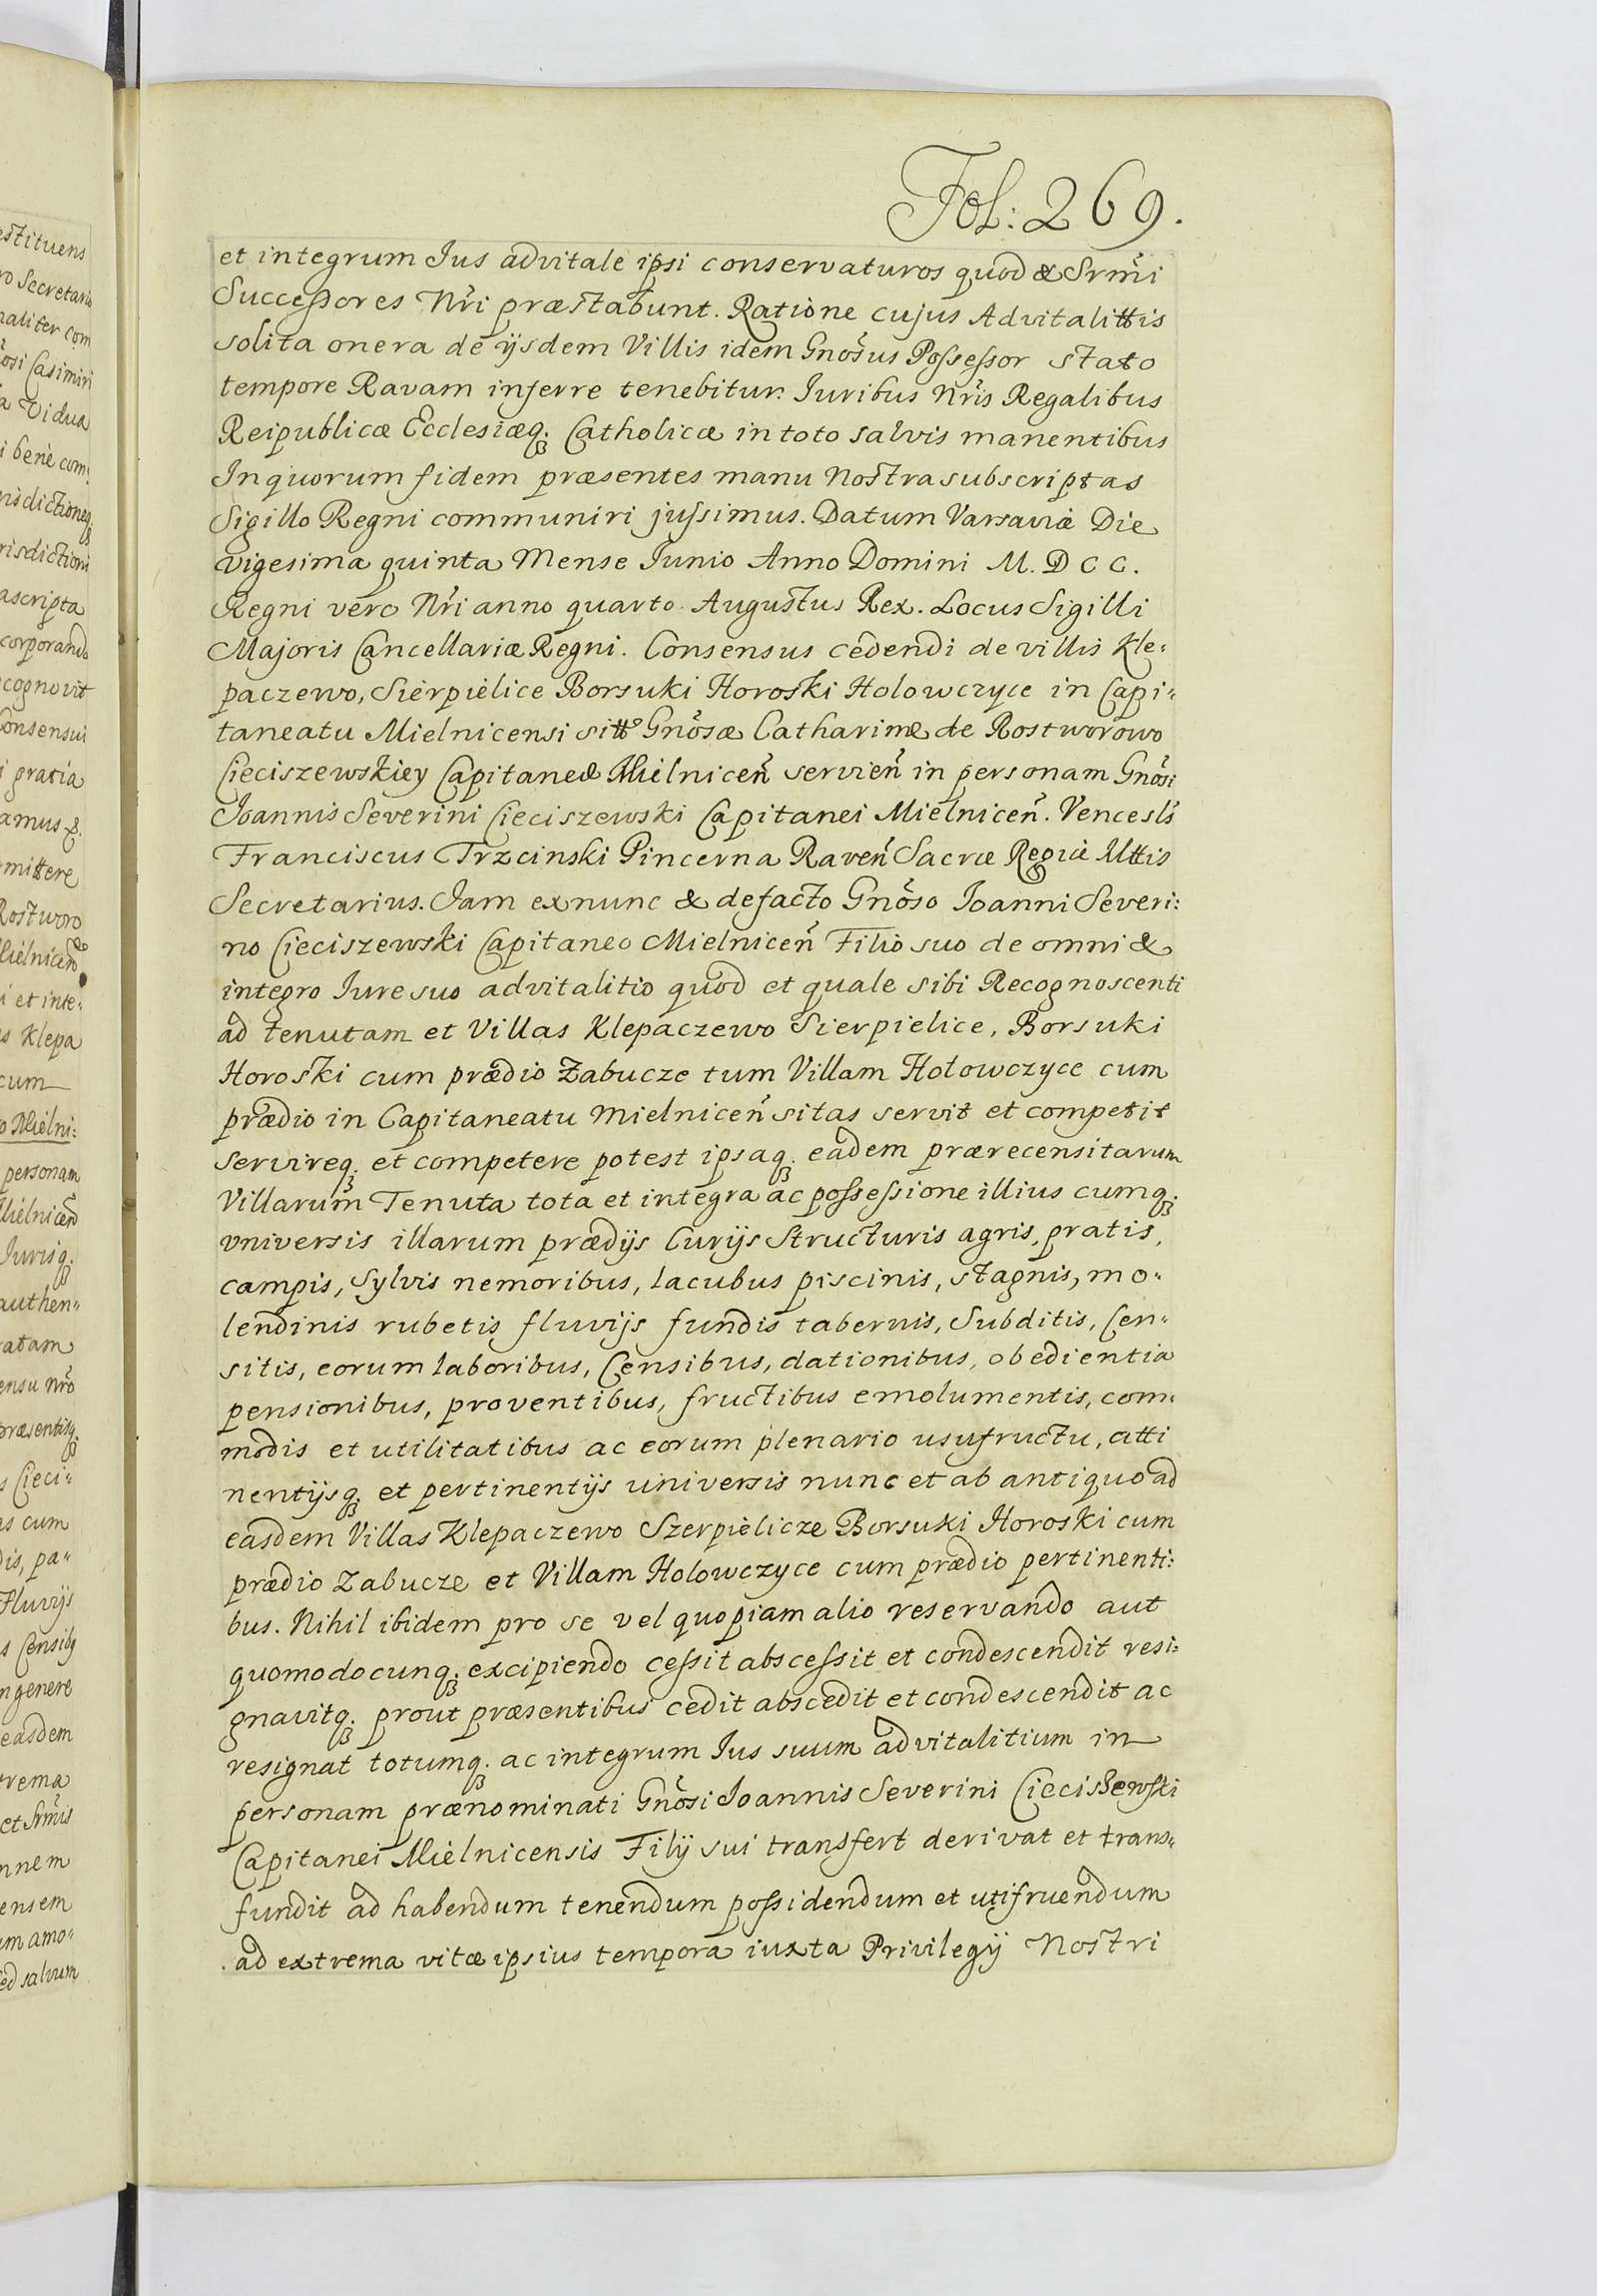 Fol: 269.
et integrum Ius advitale ipsi conservaturos quod & Srmi
Successores Nri præstabunt. Ratione cujus Advitalittis
solita onera de ijsdem Villis idem Gnosus Possessor stato
tempore Ravam inferre tenebitur. Iuribus Nris Regalibus
Reipublicæ Ecclesiæq; Catholicæ in toto salvis manentibus
In quorum fidem præsentes manu Nostra subscriptas
Sigillo Regni communiri jussimus. Datum Varsaviæ Die
vigesima quinta Mense Iunio Anno Domini M. D C C.
Regni vero Nri anno quarto. Augustus Rex. Locus Sigilli
Majoris Cancellariæ Regni. Consensus cedendi de villis Kle:
paczewo, Sierpielice Borsuki Horoski Holowczyce in Capi:
taneatu Mielnicensi sitt Gnosæ Catharinæ de Rostworowo
Cieciszewskiey Capitaneæ Mielnicen servien in personam Gnosi
Ioannis Severini Cieciszewski Capitanei Mielnicen. Vencesls
Franciscus Trzcinski Pincerna Raven Sacræ Regiæ Mttis
Secretarius. Iam exnunc & defacto Gnoso Ioanni Severi:
no Cieciszewski Capitaneo Mielnicen Filio suo de omni &
integro Iure suo advitalitio quod et quale sibi Recognoscenti
ad tenutam et Villas Klepaczewo Sierpielice, Borsuki
Horoski cum prædio Zabucze tum Villam Holowczyce cum
prædio in Capitaneatu Mielnicen sitas servit et competit
servireq; et competere potest ipsaq; eadem prærecensitarum
Villarum Tenuta tota et integra ac possessione illius cumq;
universis illarum prædijs Curijs Structuris agris, pratis,
campis, Sylvis nemoribus, lacubus piscinis, stagnis, mo:
lendinis rubetis fluvijs fundis tabernis, Subditis, Cen:
sitis, eorum laboribus, Censibus, dationibus, obedientia
pensionibus, proventibus, fructibus emolumentis, com:
modis et utilitatibus ac eorum plenario usufructu, atti
nentijsq; et pertinentijs universis nunc et ab antiquo ad
easdem Villas Klepaczewo Szerpielicze Borsuki Horoski cum
prædio Zabucze et Villam Holowczyce cum prædio pertinenti:
bus. Nihil ibidem pro se vel quopiam alio reservando aut
quomodocunq; excipiendo cessit abscessit et condescendit resi:
gnavitq; prout præsentibus cedit abscedit et condescendit ac
resignat totumq; ac integrum Ius suum advitalitium in
personam prænominati Gnosi Ioannis Severini Ciecissewski
Capitanei Mielnicensis Filij sui transfert derivat et trans:
fundit ad habendum tenendum possidendum et utifruendum
ad extrema vitæ ipsius tempora iuxta Privilegij Nostri